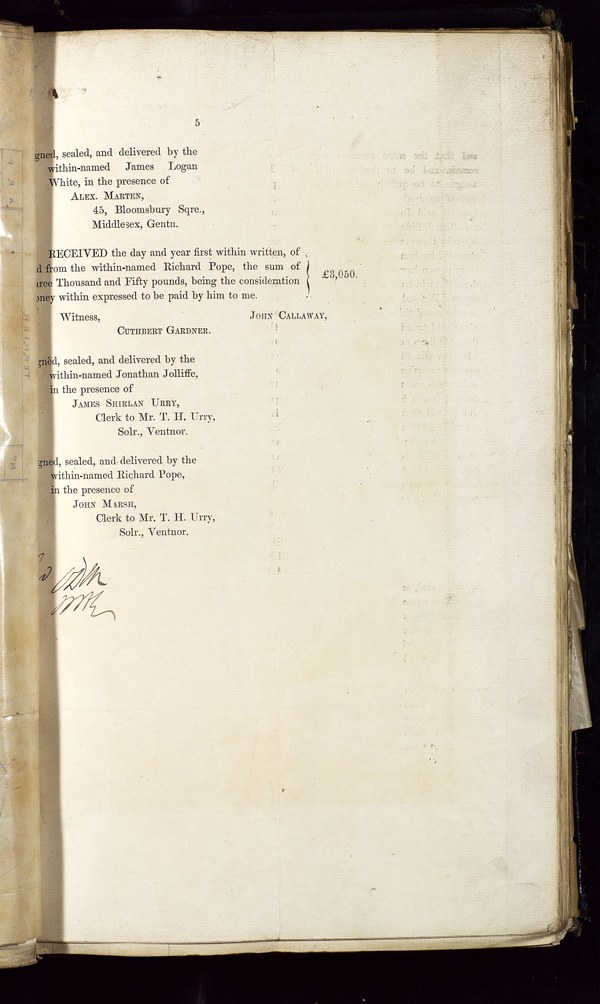 5
gned, sealed, and delivered by the
within-named James Logan
White, in the presence of
ALEX. MARTEN,
45, Bloomsbury Sqre.,
Middlesex, Gentn.
RECEIVED the day and year first within written, of
d from the within-named Richard Pope, the sum of
ree Thousand and Fifty pounds, being the consideration
oney within expressed to be paid by him to me.
£3,050.
Witness, JOHN CALLAWAY,
CUTHBERT GARDNER.
gned, sealed, and delivered by the
within-named Jonathan Jolliffe,
in the presence of
JAMES SHIRLAN URRY,
Clerk to Mr. T. H. Urry,
Solr., Ventnor.
gned, sealed, and delivered by the
within-named Richard Pope,
in the presence of
JOHN MARSH,
Clerk to Mr. T. H. Urry,
Solr., Ventnor.